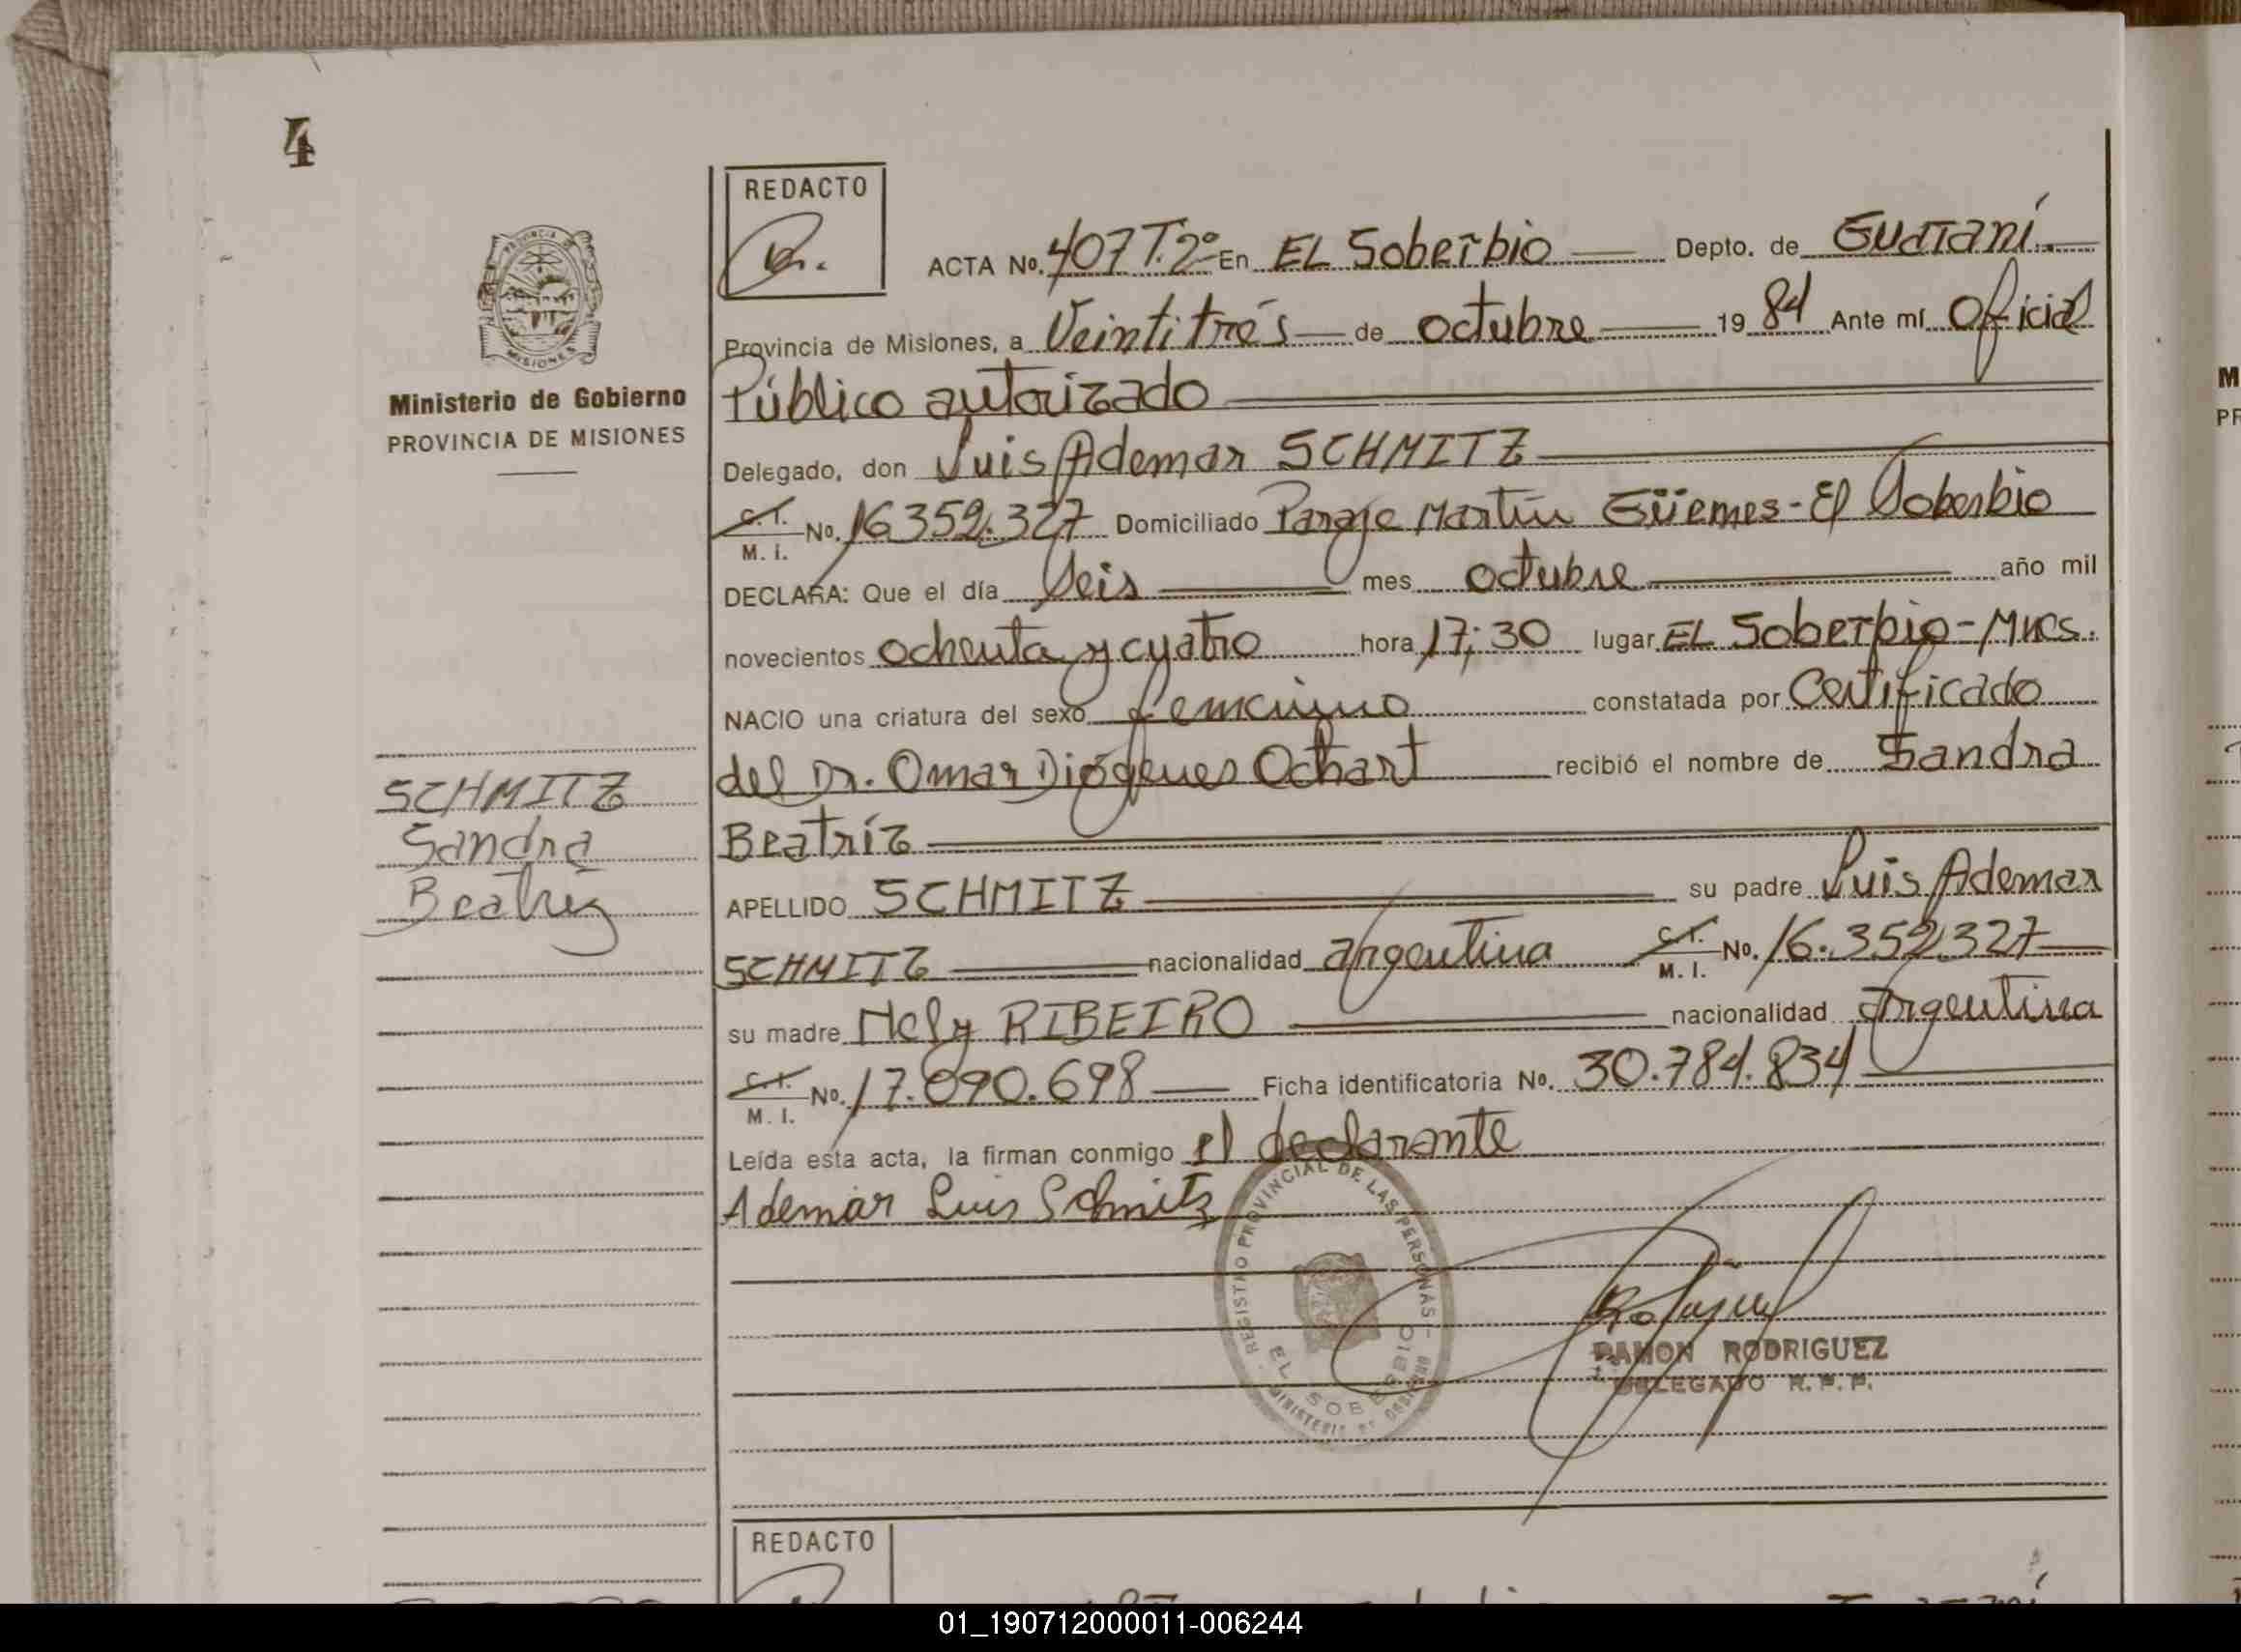 4
REDACTO
ACTA No. 407 T.2º En EL Soberbio Depto. de Guaraní
Provincia de Misiones, a Veintitrés de octubre 1984 Ante mí Oficial
Público autorizado
Delegado, don Luis Ademar SCHMITZ
C.I. M.I. No. 16.352.327 Domiciliado Paraje Martín Güemes - El Soberbio
DECLARA: Que el día Seis mes octubre año mil
novecientos ochenta y cuatro hora 17:30 lugar EL Soberbio - Mnes.
NACIO una criatura del sexo femenino constatada por Certificado
del Dr. Omar Diógenes Ochart recibió el nombre de Sandra
Beatríz
APELLIDO SCHMITZ su padre Luis Ademar
SCHMITZ nacionalidad argentina C.I. M.I. No. 16.352.327
su madre Nely RIBEIRO nacionalidad argentina
C.I. M.I. No. 17.090.698 Ficha identificatoria No. 30.784.834
Leída esta acta, la firman conmigo el declarante
Ademar Luis Schmitz
RAMON RODRIGUEZ
DELEGADO R. P. P.
REGISTRO PROVINCIAL DE LAS PERSONAS
EL SOBERBIO
MINISTERIO DE GOBIERNO
PROVINCIA DE
MISIONES
Ministerio de Gobierno
PROVINCIA DE MISIONES
SCHMITZ
Sandra
Beatriz
REDACTO
M
PR
01_190712000011-006244